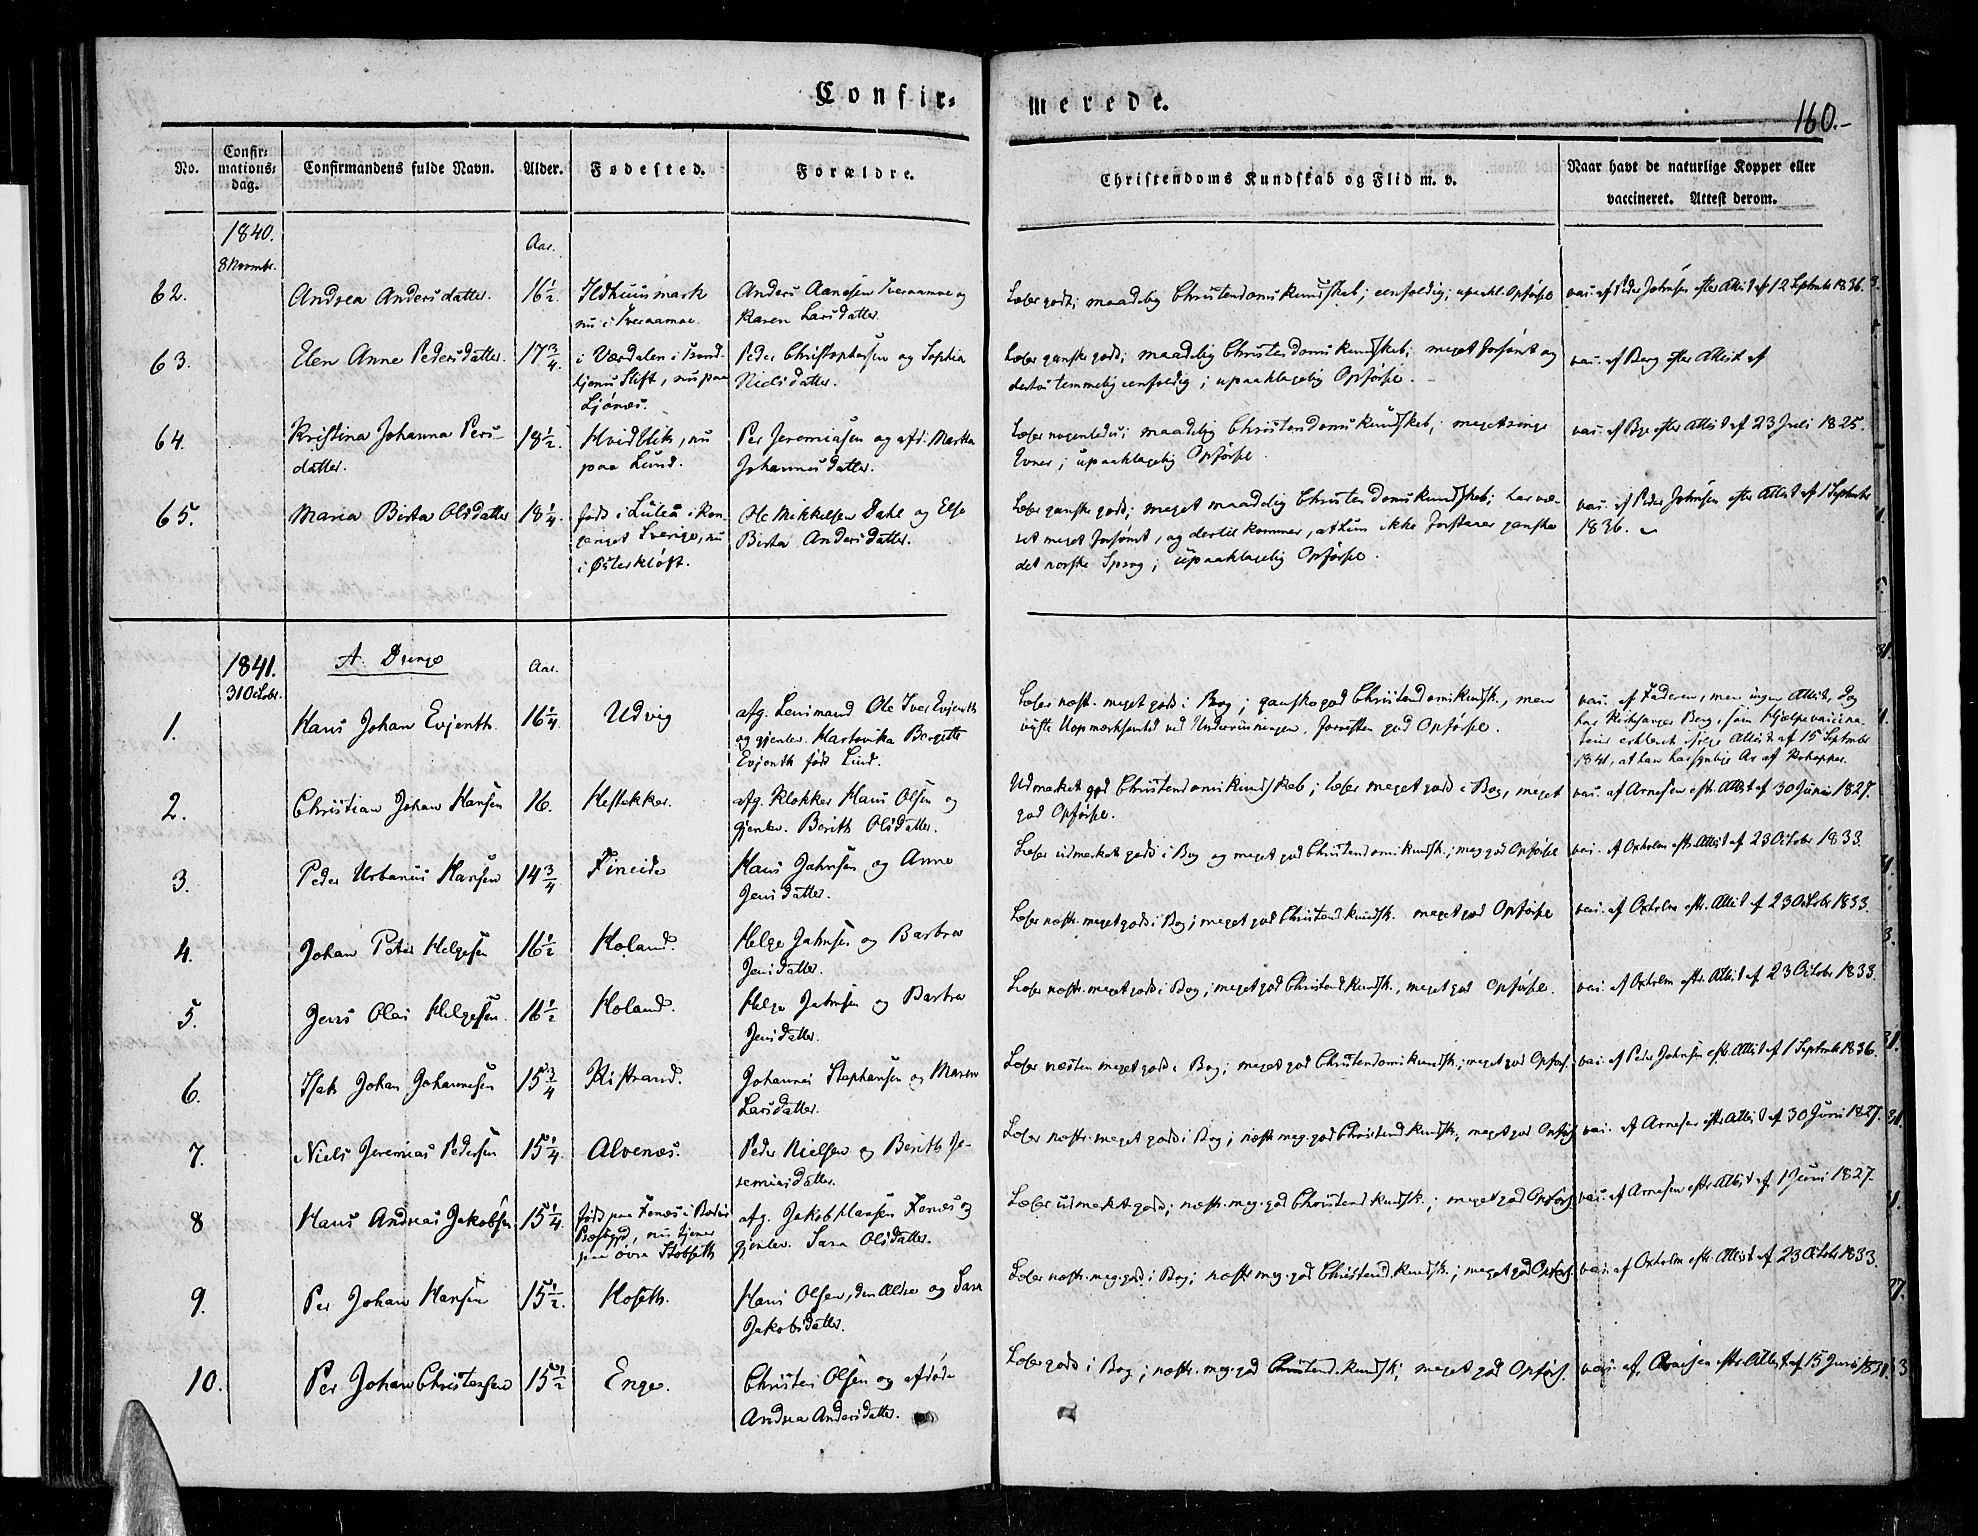 Confir-
merede.
160.-
No.
Confir-
mations-
dag.
Confirmandens fulde Navn.
Alder.
Fødested.
Forældre.
Christendoms Kundskab og Flid m. v.
Naar havt de naturlige Kopper eller
vaccineret. Attest derom.
1840.
8 Novembr.
Aar.
62.
Andrea Andersdatter.
16 1/2
Ildhuusmark
nu i Tveraamoe.
Anders Aanesen Tveraamoe og
Karen Larsdatter.
Læser godt; maadelig Christendomskundskab; eenfoldig; upaakl. Opførsel
vac. af Peder Johnsen efter Attest af 12 Septembr 1836.
63.
Elen Anne Pedersdatter.
17 3/4
i Værdalen i Trond-
hjems Stift, nu paa
Ljønæs.
Peder Christophersen og Sophia
Nielsdatter.
Læser ganske godt; maadelig Christendomskundskab; meget forsømt og
desuden temmelig eenfoldig; upaaklagelig Opførsel.
vac. af Berg efter Attest af
64.
Kristina Johanna Pers-
datter.
18 1/2.
Hvidblik, nu
paa Lund.
Per Jeremiasen og afd. Martha
Johannesdatter.
Læser nogenledes; maadelig Christendomskundskab; meget ringe
Evner; upaaklagelig Opførsel.
vac. af Bye efter Attest af 23 Juli 1825.
65.
Maria Birta Olsdatter
18 1/4.
født i Luleå i Kon-
geriget Sverige, nu
i Østerkløft.
Ole Mikkelsen Dahl og Else
Birta Andersdatter.
Læser ganske godt; meget maadelig Christendomskundskab; har væ-
ret meget forsømt, og dertil kommer, at hun ikke forstaaer ganske
det norske Sprog; upaaklagelig Opførsel.
vac. af Peder Johnsen efter Attest af 1 Septembr
1836.
1841.
31 Octobr.
A. Drenge
Aar.
1.
Hans Johan Evjenth
16 1/4
Udvig
afg. Lensmand Ole Iver Evjenth
og gjenlev. Hartvika Bergette
Evjenth født Lind.
Læser næst. meget godt i Bog; ganske god Christendomskundsk., men
Uopmærksomhed ved Underviisningen, forresten god Opførsel.
vac. af Faderen, men ingen Attest, dog
har Kirkesanger Berg, som Hjælpevaccina-
teur erklæret ifølge Attest af 15 Septembr
1841, at han har synlige Ar af Kokopper.
2.
Christian Johan Hansen
16.
Hestekker.
afg. Klokker Hans Olsen og
gjenlev. Berith Olsdatter.
Udmærket god Christendomskundskab; læser meget godt i Bog, meget
god Opførsel.
vac. af Arnesen eft. Attest af 30 Juni 1827.
3.
Peder Urbanus Hansen
14 3/4
Fineide
Hans Jahnsen og Anne
Jensdatter.
Læser udmærket godt i Bog og meget god Christendomskundsk.; meg. god Opførsel
vac. af Oxholm eft. Attest af 23 October 1833.
4.
Johan Peter Helgesen
16 1/2
Holand.
Helge Jahnsen og Barbro
Jensdatter.
Læser næst. meget godt i Bog; meget god Christend. kundsk. meget god Opførsel
vac. af Oxholm eft. Attest af 23 October 1833.
5.
Jens Olai Helgesen.
16 1/2
Holand.
Helge Jahnsen og Barbro
Jensdatter.
Læser næst. meget godt i Bog; meget god Christend. kundsk., meget god Opførsel.
vac. af Oxholm eft. Attest af 23 Octobr 1833.
6.
Isak Johan Johannesen
15 3/4
Kistrand.
Johannes Stephansen og Maren
Larsdatter.
Læser næsten meget godt i Bog; meget god Christendomskundsk.; meget god Opførs.
vac. af Peder Johnsen eft. Attest af 1 Septembr 1836.
7.
Niels Jeremias Pedersen
15 1/4.
Alvenæs.
Peder Nielsen og Berith Je-
remiasdatter.
Læser næst. meget godt i Bog; næst. meg. god Christend. kundsk.; meget god Opførs.
vac. af Arnesen eft. Attest af 30 Juni 1827.
8
Hans Andreas Jakobsen
15 1/4.
født paa Fenæs i Bodø
Præstegjd, nu tjener
paa øvre Stobseth
afg. Jakob Hansen Fenæs og
gjenlev. Sara Olsdatter.
Læser udmærket godt; næst. meg. god Christend. kundsk.; meget god Opførs.
vac. af Arnesen eft. Attest af 1 Juni 1827.
9.
Per Johan Hansen
15 1/2.
Hoseth.
Hans Olsen, den Ældre og Sara
Jakobsdatter.
Læser næst. meg. godt i Bog; næst. meg. god Christend. kundsk.; meget god Opførs.
vac. af Oxholm eft. Attest af 23 Octobr 1833.
10.
Per Johan Christensen
15 1/2
Enge.
Christen Olsen og afdøde
Andrea Andersdatter.
Læser godt i Bog; næst. meg. god Christend. kundsk.; meget god Opførs.
vac. af Arnesen eft. Attest af 15 Juni 1831.